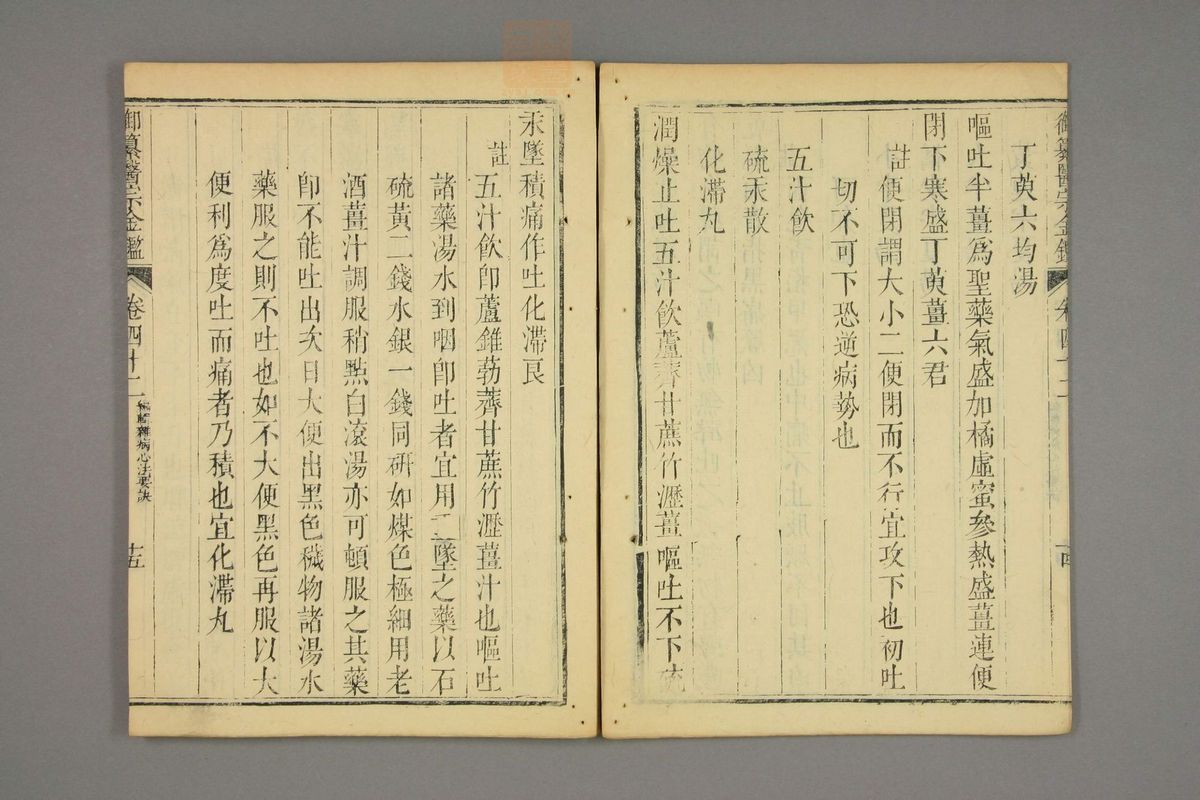 御纂醫宗金鑑
卷四十二
十四
丁萸六均湯
嘔吐半薑爲聖藥氣盛加橘虛蜜參熱盛薑連便
閉下寒盛丁萸薑六君
註便閉謂大小二便閉而不行宜攻下也初吐
切不可下恐逆病勢也
五汁飲
硫汞散
化滯丸
潤燥止吐五汁飲蘆薺甘蔗竹瀝薑嘔吐不下硫
汞墜積痛作吐化滯良
註五汁飲卽蘆錐葧薺甘蔗竹瀝薑汁也嘔吐
諸藥湯水到咽卽吐者宜用重墜之藥以石
硫黃二錢水銀一錢同硏如煤色極細用老
酒薑汁調服稍點白滾湯亦可頓服之其藥
卽不能吐出次日大便出黑色穢物諸湯水
藥服之則不吐也如不大便黑色再服以大
便利爲度吐而痛者乃積也宜化滯丸
御纂醫宗金鑑
卷四十二
編輯雜病心法要訣
十五